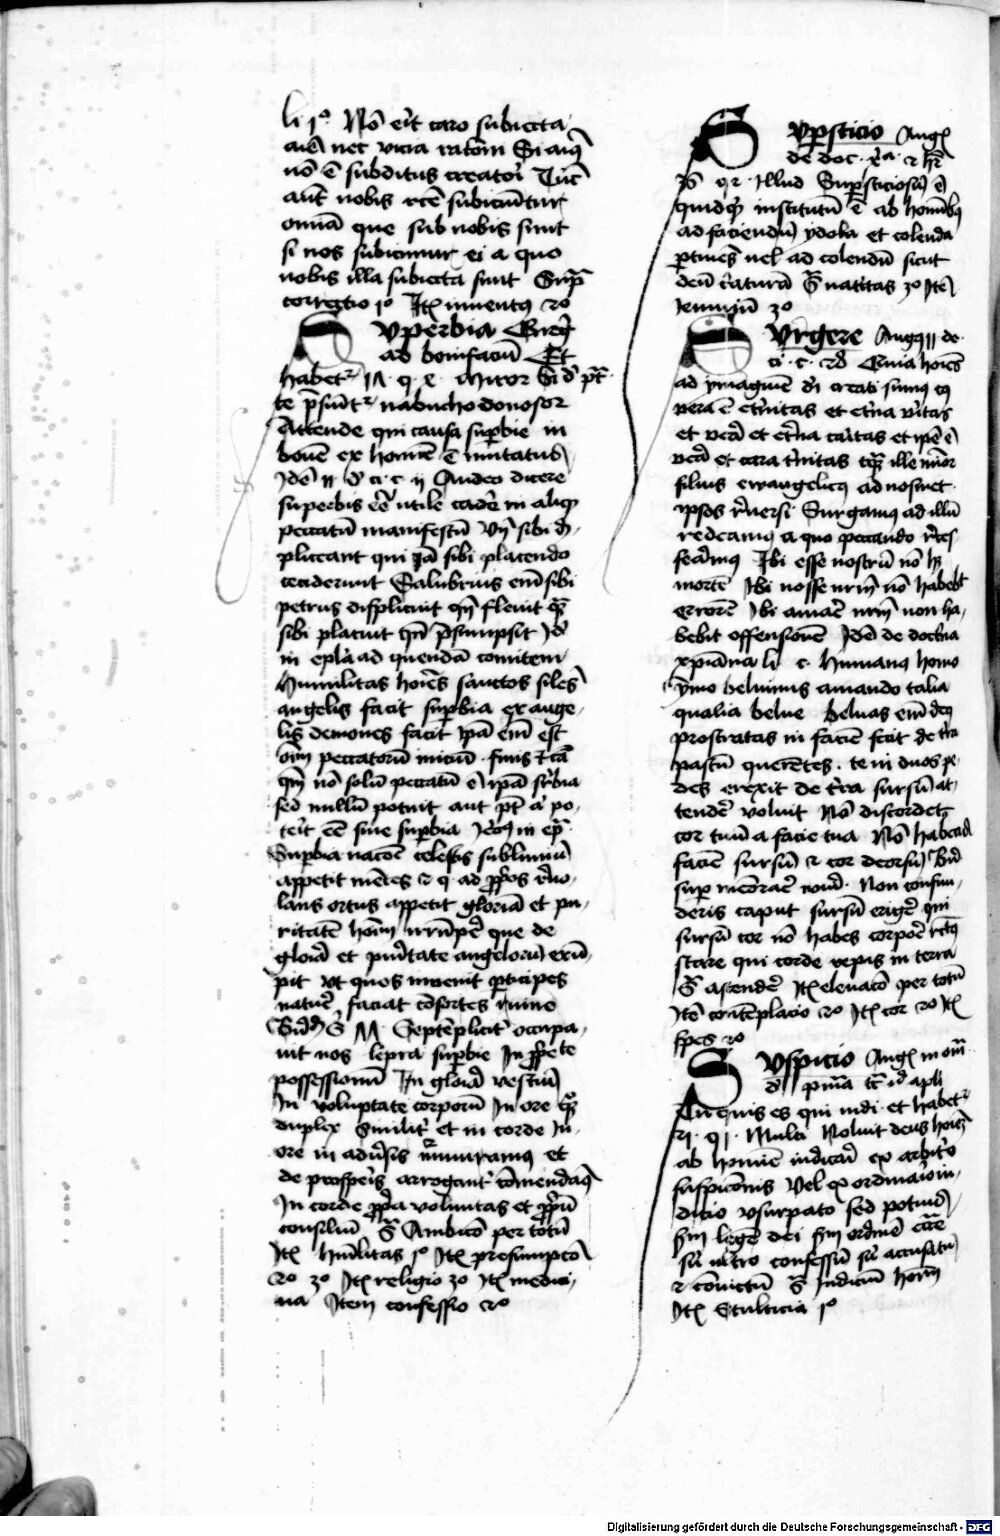 li 1º Nō erit caro subiecta
aīe nec vicia racioni Si aīus
nō ē subditus creatori Tūc
aūt nobis rcē subiciūtur
omīa que sub nobis sunt
si nos subicimur ei a quo
nobis illa subiecta sunt Supͣ
correctio 1º Itē inventus 2º
Superbia Gregͦ
ad bonifaciū Et
habetͬ IX q x Miror Si dͥ pͬt
te p̄sūtͬ nabuchodonosor
Attende qui causa suꝑbie in
bovē ex homīe ē mutatus
Idē xi dͤ ci c ii Audeo dicere
superbis eē utile cadē in aliqͦ
peccatū manifestū Vn̄ sibi di
pliceant qui iā sibi placendo
ceciderunt Salubrius enī sibi
petrus displicuit qn̄ flevit qͣ
sibi placuit qn̄ p̄sumpsit Idͤ
in epl̄a ad quendā comitem
Humilitas hoīes sanctos siles
angelis facit suꝑbia ex ange
lis demones facit Ipā enī est
oīm peccatorū iniciū finis et cā
qn̄ nō solū peccatū ē ipā suꝑbia
sed nullū potuit aut pͭ aͥ po
teͥt eē sine suꝑbia Ieroͦ in epͣ
Suꝑbia nacōe celestis sublimiū
appetit mētes
lans ortus appetit gloriā et pu
ritatē hoīm irrūpē que de
gloīa et puͥtate angeloruͫ erū
pit Vt quos invenit ꝑticipes
natuͤ faciat cōsortes ruine
Bernͩ Sͥ M Septēpliciͭ occupa
vit nos lepra suꝑbie In ꝓpͥete
possessionū In gloīa vestiū
In voluptate corporū In ore qͣ
duplex Similiͭ et in corde In
ore in advͤsis murmuramus et
de prospeͥs arroganͭ cōmendaꝰ
In corde ꝓpͥa voluntas et ꝓpͥū
consiliū Sͣ Ambicō per totū
Itē Huīlitas 1º Itē presumpcō
2º 3º Itē religio 3º Itē medici
na Item confessio 2º
Suꝑsticio Augͦ
de doc xͥa et hr̄
Illud Suꝑsticiosū ē
quidqͥd institutū ē ab homībus
ad faciendū ydola et colenda
ꝑtinēs vel ad colendū sicut
deū cͥaturā Sͣ nativitas 3º Itē
Ieiuniū 3º
Surgere Augͦ xi de
ci c Quia hoīes
ad ymaginē dͥ creati sumus cuͥ
vera ē etͥnitas et etͥna vͥtas
et veͣ et etͥna caͥtas et ipē ē
veͣ et cara tͥnitas tqͣ ille mīor
filius ewangelicus ad nosmet
ipsos rͤversi Surgamus ad illū
redeamus a quo peccando rͤces
seamus Ibi esse nostrū nō hͫ
mortē Ibi nosse nrm̄ nō habebͭ
errorē Ibi amaͤ nrm̄ non ha
bebit offensionē Idē de docͭna
xpiāna li c Humanus homo
ymo beluinus amando talia
qualia belue Beluas enī deꝰ
prostratas in faciē fecit de tͬra
pastū querētes te in duos pe
des erexit de tͬra sursū at
tendē voluit Nō discordet
cor tuū a facie tua Nō habead
faciē sursū et cor deorsū Berͩ
suꝑ memoraͤ novͥ Non confun
deris caput sursū erigē qui
sursū cor nō habes corpoͤ rectus
stare qui corde repis in terra
Sͣ ascendē Itē elevacō per totū
Itē contēplacio 2º Itē cor 2º Itē
spes 2º
Suspicio Augͦ in omͥ
pͥma
Tu quis es qui iudi et habetͬ
vi q i Multi Noluit deus hoīem
ab homīe iudicaͥ ex arbitͥo
suspicōnis Vel ex ordinaͥo iu
dicio usurpato sed potius
scͫ legē dei scͫ ordinē eccͤe
siͥ ultro confessū siͥ accusatū
et convictū Sͣ Iudiciū hoīm
Itē Stulticia 1º
Digitalisierung gefördert durch die Deutsche Forschungsgemeinschaft - DFG